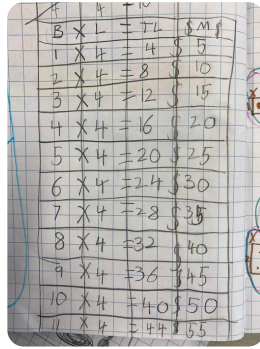 B X L = TL $ M $
1 X 4 = 4 $ 5
2 X 4 = 8 $ 10
3 X 4 = 12 $ 15
4 X 4 = 16 $ 20
5 X 4 = 20 $ 25
6 X 4 = 24 $ 30
7 X 4 = 28 $ 35
8 X 4 = 32 $ 40
9 X 4 = 36 $ 45
10 X 4 = 40 $ 50
11 X 4 = 44 $ 55